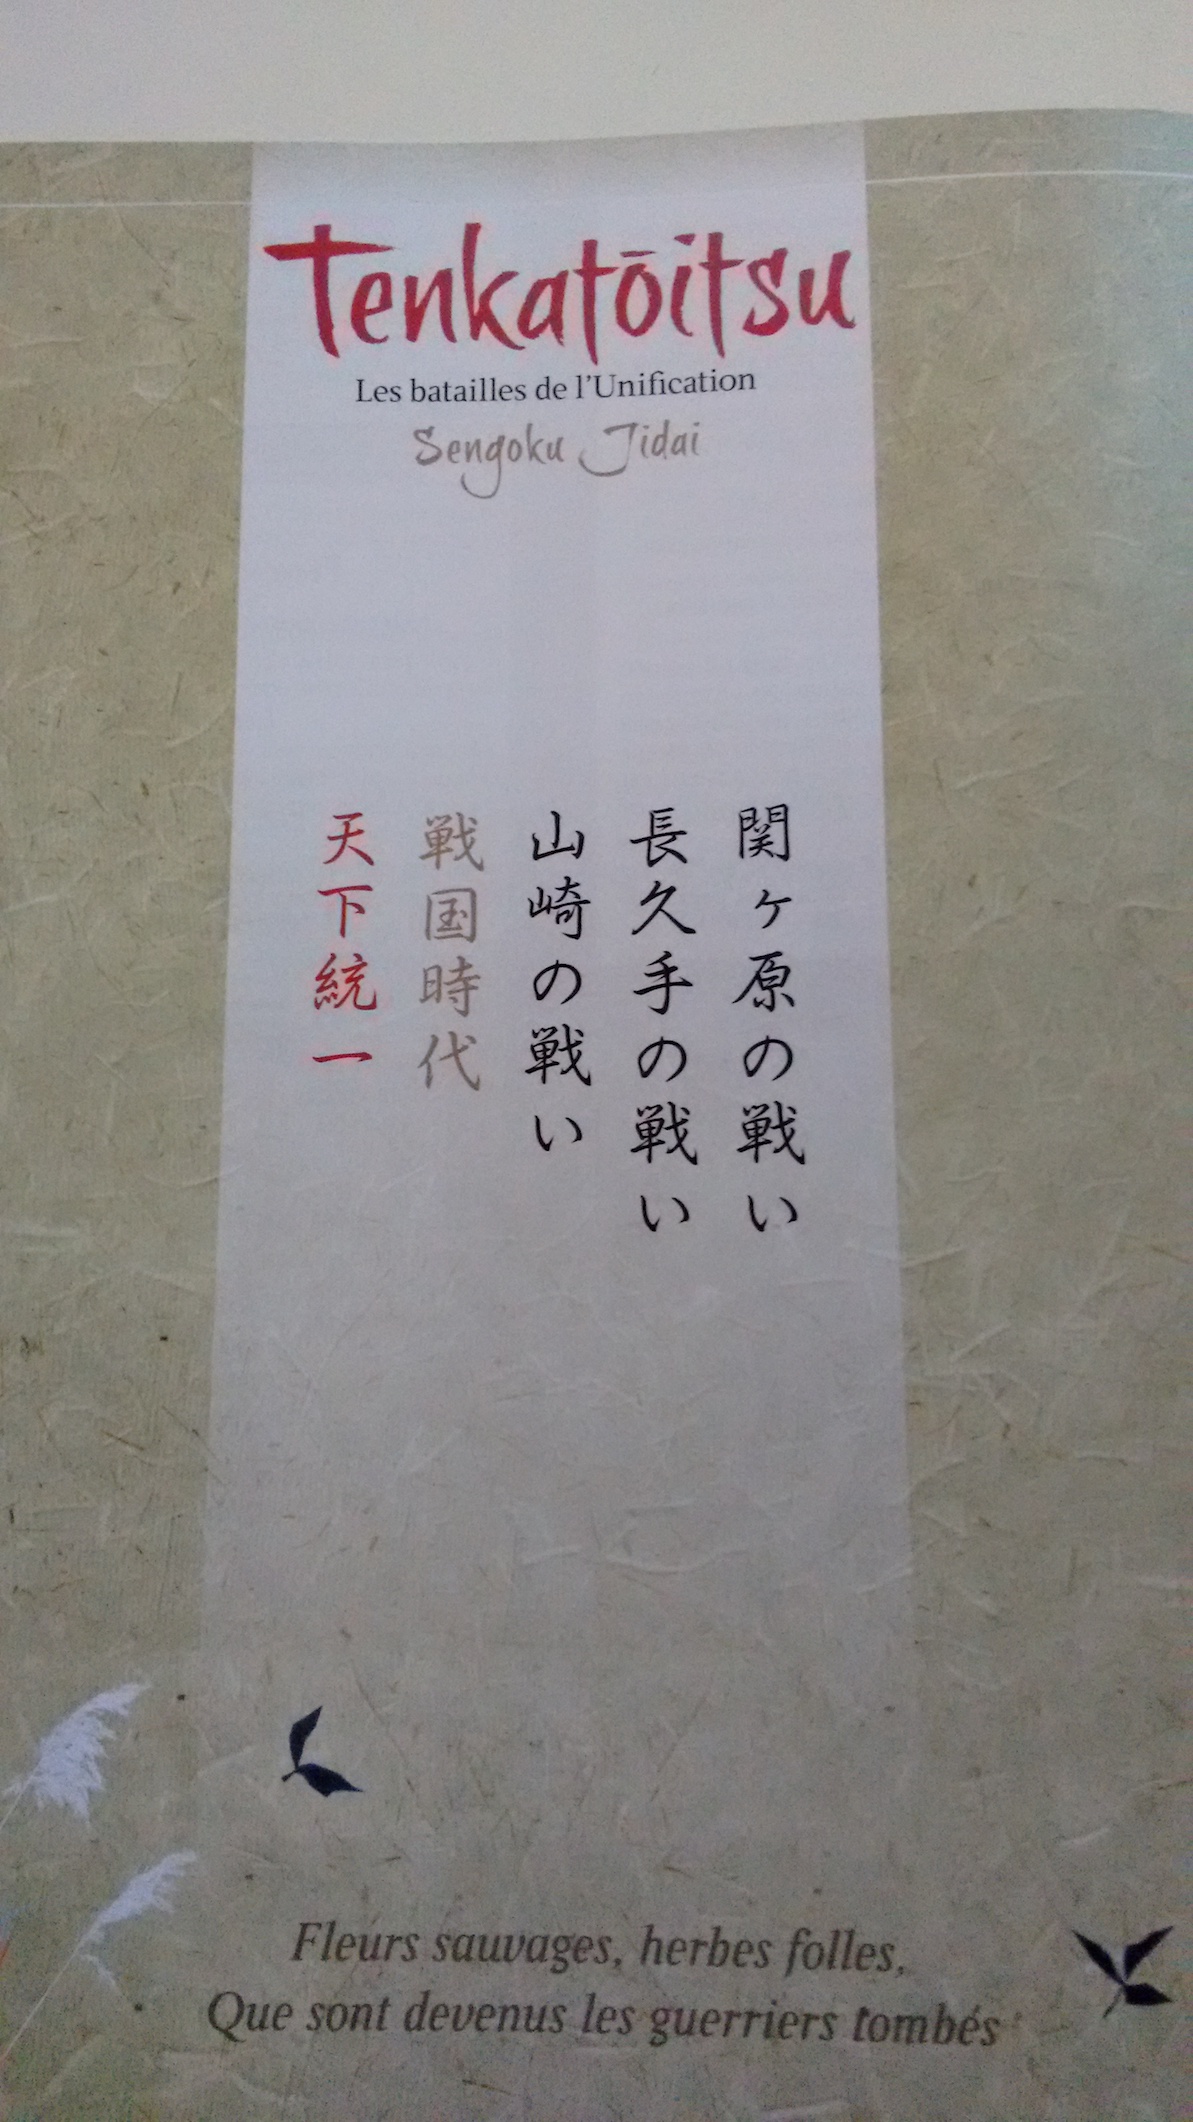 Tenkatōitsu
Les batailles de l'Unification
Sengoku Jidai
関ヶ原の戦い
長久手の戦い
山崎の戦い
戦国時代
天下統一
Fleurs sauvages, herbes folles,
Que sont devenus les guerriers tombés